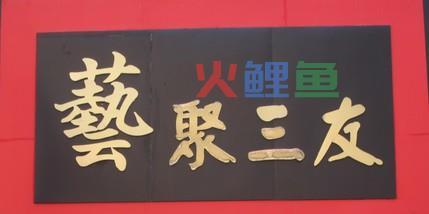 火鲤鱼
藝聚三友